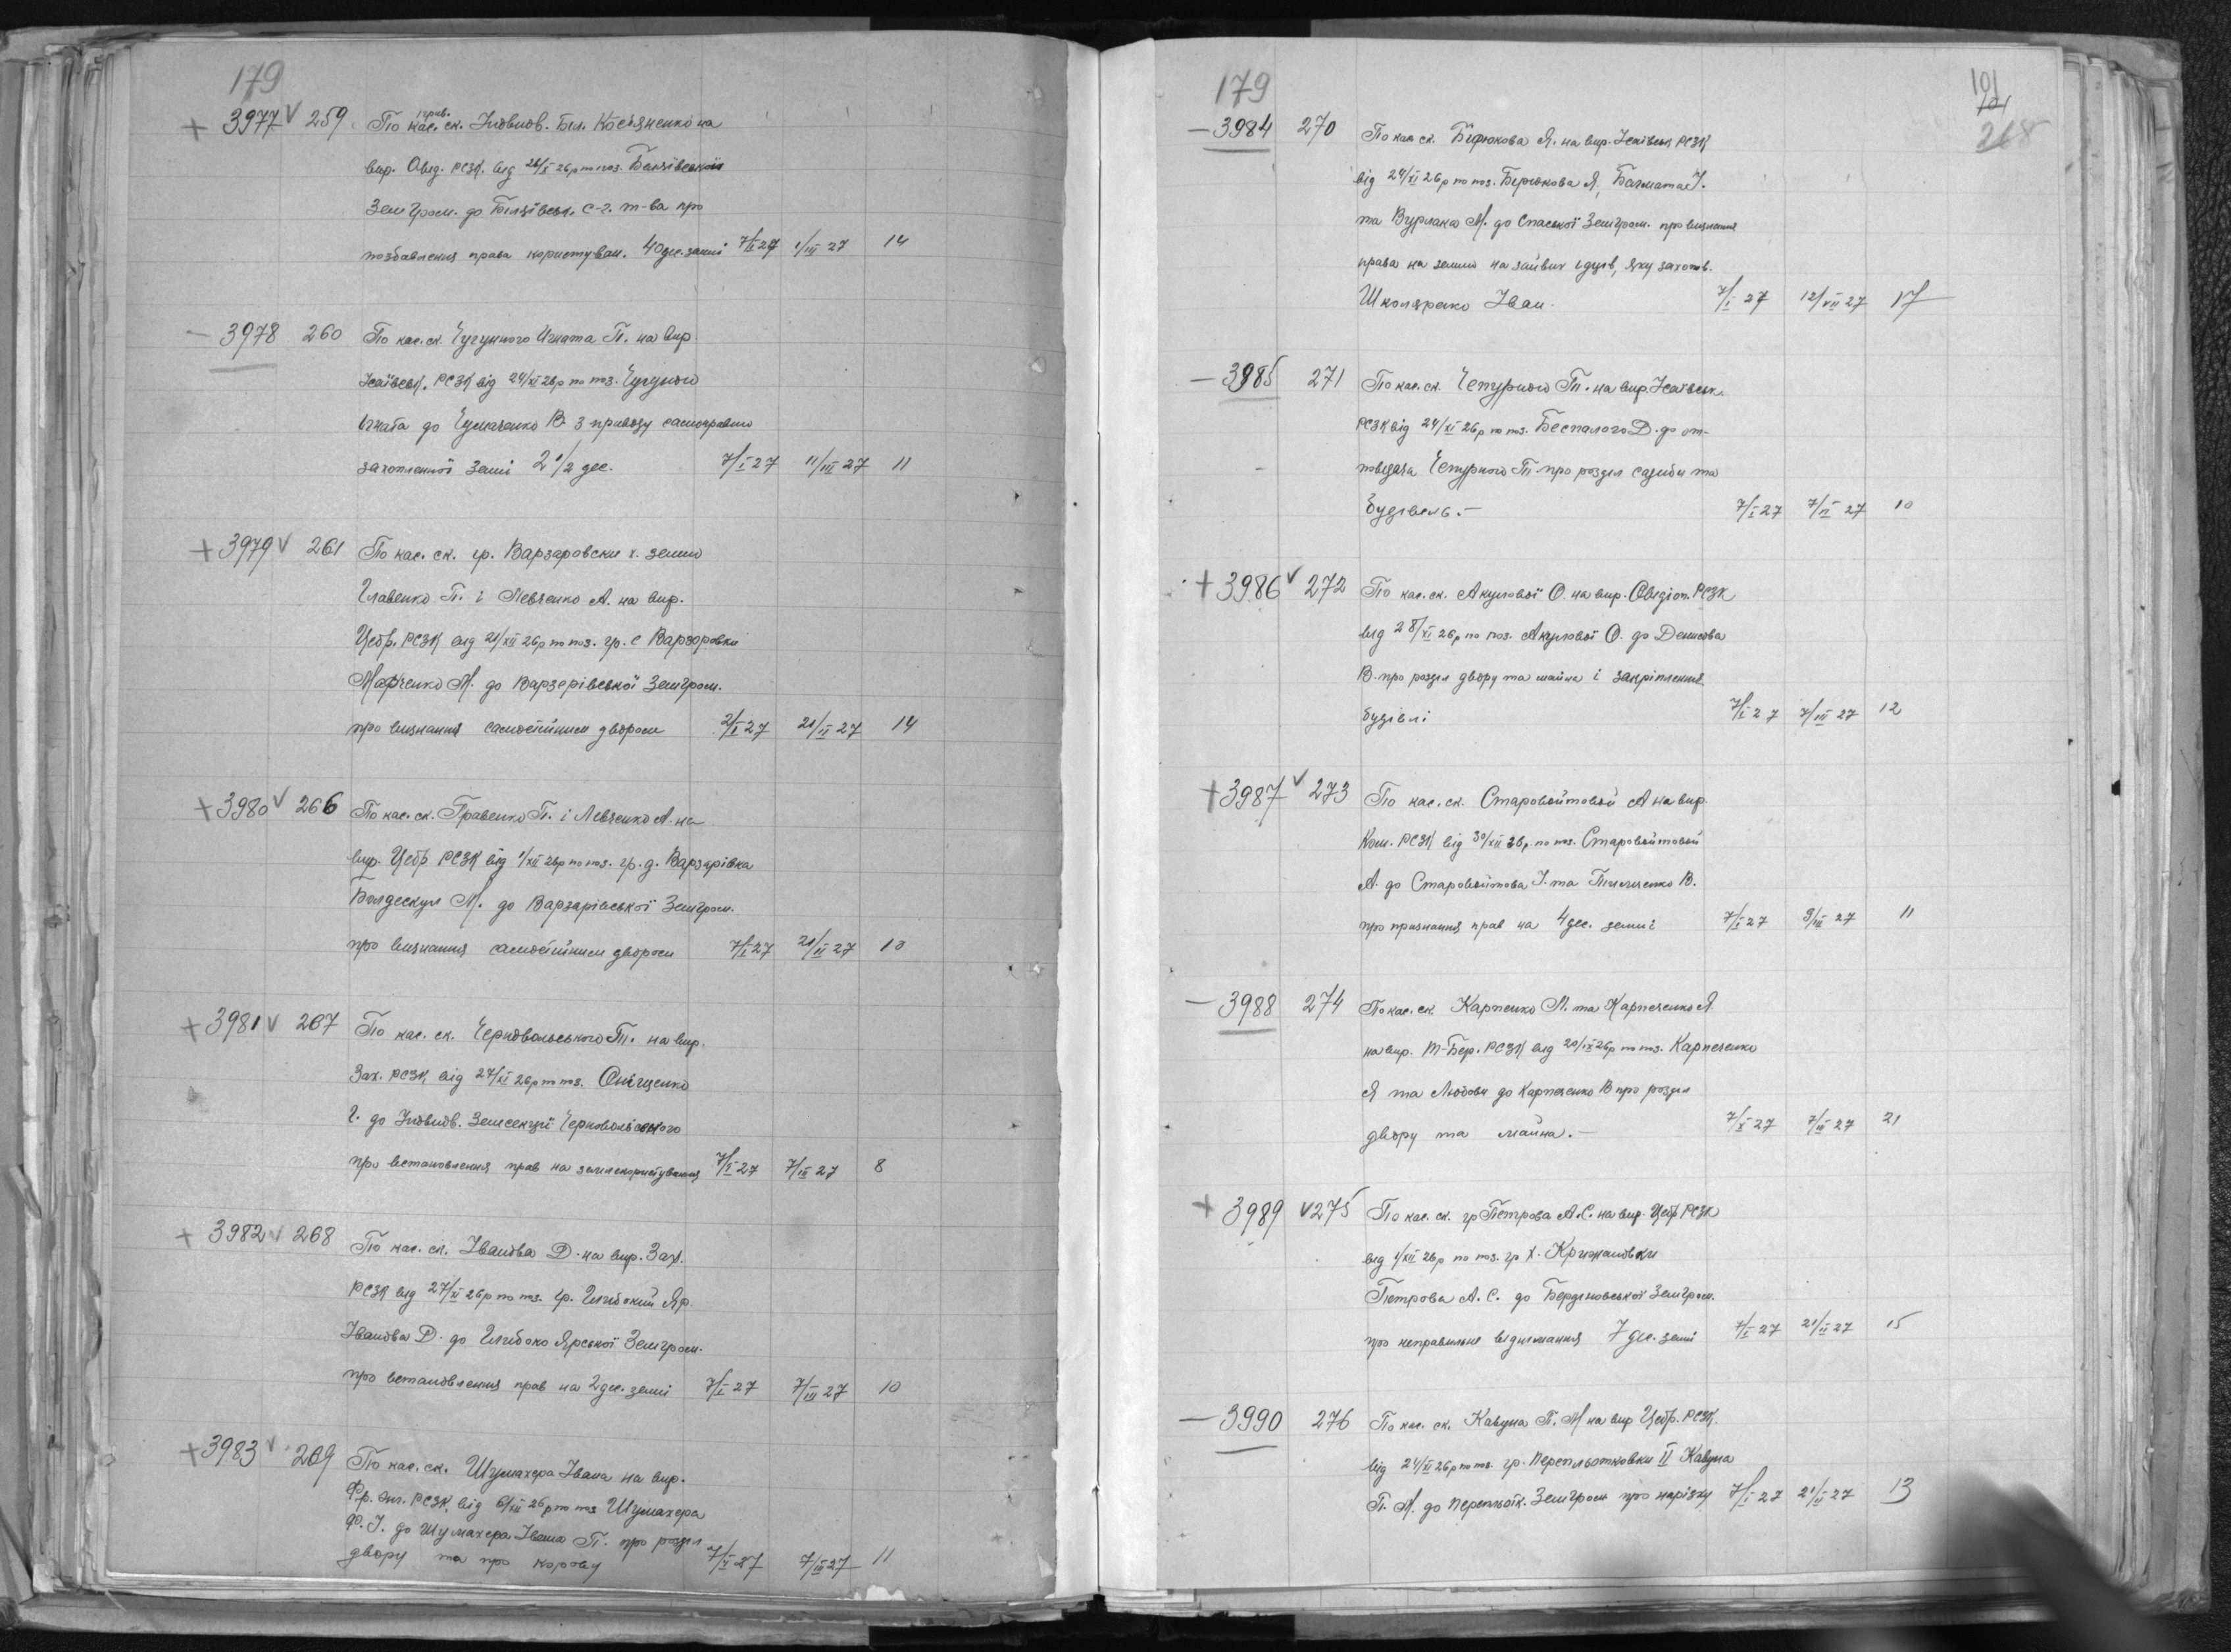 179
+ 3977 V 259 По кас. ск. Уповнов. Біл. Косьяненко на
вир. Овід. РСЗК. від 26/X 26 р по поз. Білзівської
Земгром. до Білзівськ. С-г. т-ва про
позбавлення права користуван. 40 дес. землі 7/I 27 1/III 27 14
— 3978 260 По кас. ск. Чугунного Игната П. на вир
Ісаївськ. РСЗК від 24/XI 26 р по поз. Чугуного
Ігната до Чумаченко В. з приводу самоправно
захопленної землі 2 1/2 дес. 7/I 27 11/III 27 11
+ 3979 V 261 По кас. ск. гр. Варзаровски х. землю
Главенко П. і Левченко А. на вир.
Цебр. РСЗК від 21/XII 26 р по поз. гр. с Варзоровки
Марченко М. до Варзерівської Земгром.
про визнання самостійним двором 2/I 27 21/II 27 14
+ 3980 V 266 По кас. ск. Гравенко П. і Левченко А. на
вир. Цебр РСЗК від 1/XII 26 р по поз. гр. д. Варзарівка
Болдескул М. до Варзарівської Земгром.
про визнання самостійним двором 7/I 27 21/II 27 10
+ 3981 V 267 По кас. ск. Черновольського Т. на вир.
Зах. РСЗК від 27/XI 26 р по поз. Онищенко
Г. до Уповнов. Земсекції Черновольського
про встановлення прав на землекористування 7/I 27 7/III 27 8
+ 3982 V 268 По кас. ск. Іванова Д. на вир. Зах.
РСЗК від 27/XI 26 р по поз. гр. Глибокий Яр
Іванова Д. до Глибоко Ярської Земгром.
про встановлення прав на 2 дес. землі 7/I 27 7/III 27 10
+ 3983 V 269 По кас. ск. Шумахера Івана на вир.
Фр. Энг. РСЗК від 6/XII 26 р по поз Шумахера
Ф. І. до Шумахера Івана П. про розділ
двору та про корову 7/I 27 7/III 27 11
179
101
268
— 3984 270 По кас ск. Бірюкова Я. на вир. Ісаївськ РСЗК
від 24/XI 26 р по поз. Бірюкова Я, Багмата І.
та Бурлака М. до Спаської Земгром. про визнання
права на землю на зайвих їдців, яку захопив.
Школяренко Іван. 7/I 27 12/VII 27 17
— 3985 271 По кас. ск. Чепурного П. на вир. Ісаївськ.
РСЗК від 24/XI 26 р по поз. Беспалого Д. до от-
повідача Чепурного П. про розділ садиби та
будівель. — 7/I 27 7/VI 27 10
+ 3986 V 272 По кас. ск. Акуловой О. на вир. Овідіоп. РСЗК
від 28/XI 26 р по поз. Акулової О. до Денисова
В. про розділ двору та майна і закріплення
будівлі 7/I 27 7/III 27 12
+ 3987 V 273 По кас. ск. Старовойтовой А на вир.
Ком. РСЗК від 30/XII 26 р. по поз. Старовойтовой
А. до Старовойтова І. та В.
про признання прав на 4 дес. землі 7/I 27 9/III 27 11
— 3988 274 По кас. ск. Карпенко Л. та Карпеченко Я.
на вир. Т-Бер. РСЗК від 20/IX 26 р по поз. Карпеченко
Я та Любови до Карпеченко В про розділ
двору та майна. — 7/I 27 7/III 27 21
+ 3989 V 275 По кас. ск. гр Петрова А. С. на вир. Цебр РСЗК
від 1/XII 26 р по поз. гр х. Крижановки
Петрова А. С. до Бердиновської Земгром.
про неправильне віднимання 7 дес. землі 7/I 27 21/II 27 15
— 3990 276 По кас. ск. Кавуна П. М на вир Цебр. РСЗК.
від 24/XI 26 р по поз. гр. Перепльотковки II Кавуна
П. М. до Перепльотк. Земгром про нарізку 7/I 27 21/II 27 13